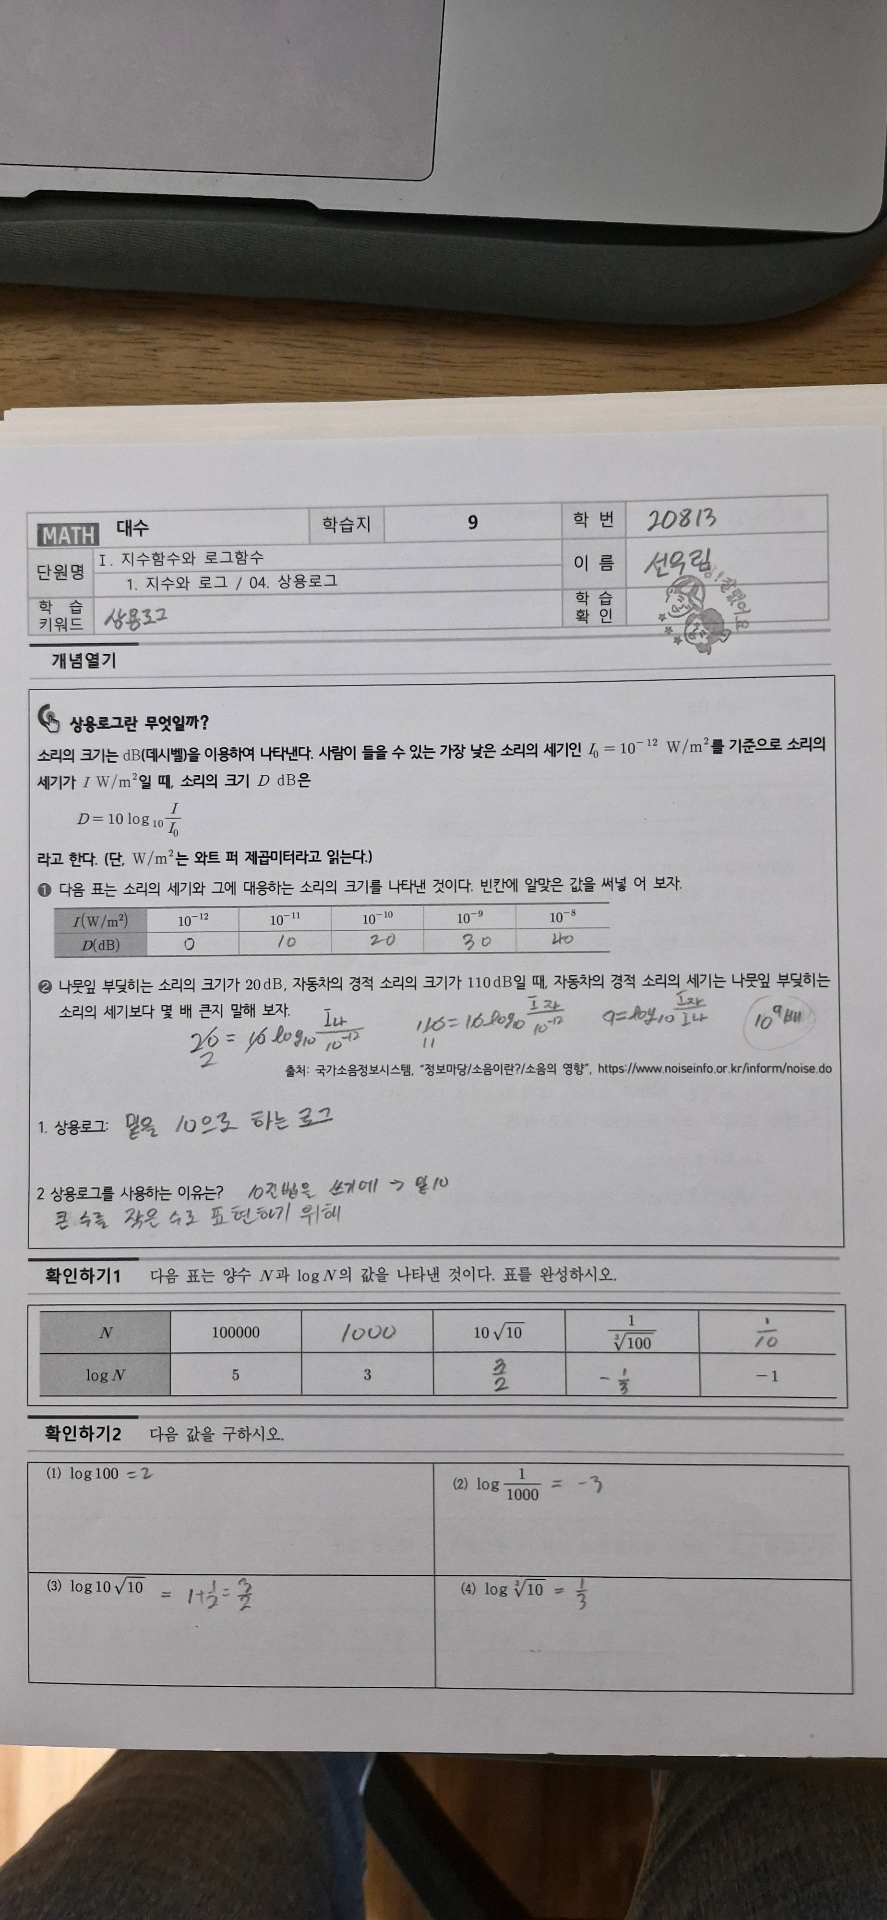 MATH 대수 학습지 9 학 번 20813
단원명 Ⅰ. 지수함수와 로그함수 이 름 선우림
1. 지수와 로그 / 04. 상용로그
학 습 키워드 상용로그 학 습 확 인
개념열기
상용로그란 무엇일까?
소리의 크기는 dB(데시벨)을 이용하여 나타낸다. 사람이 들을 수 있는 가장 낮은 소리의 세기인 I₀ = 10⁻¹² W/m²를 기준으로 소리의
세기가 I W/m²일 때, 소리의 크기 D dB은
D = 10 log₁₀ I/I₀
라고 한다. (단, W/m²는 와트 퍼 제곱미터라고 읽는다.)
❶ 다음 표는 소리의 세기와 그에 대응하는 소리의 크기를 나타낸 것이다. 빈칸에 알맞은 값을 써넣 어 보자.
I(W/m²) 10⁻¹² 10⁻¹¹ 10⁻¹⁰ 10⁻⁹ 10⁻⁸
D(dB) 0 10 20 30 40
❷ 나뭇잎 부딪히는 소리의 크기가 20dB, 자동차의 경적 소리의 크기가 110dB일 때, 자동차의 경적 소리의 세기는 나뭇잎 부딪히는
소리의 세기보다 몇 배 큰지 말해 보자.
20 = 10 log₁₀ I나/10⁻¹² 110 = 10 log₁₀ I자/10⁻¹² 9 = log₁₀ I자/I나 10⁹배
2 11
출처: 국가소음정보시스템, "정보마당/소음이란?/소음의 영향", https://www.noiseinfo.or.kr/inform/noise.do
1. 상용로그: 밑을 10으로 하는 로그
2 상용로그를 사용하는 이유는? 10진법을 쓰기에 → 밑10
큰 수를 작은 수로 표현하기 위해
확인하기1 다음 표는 양수 N과 log N의 값을 나타낸 것이다. 표를 완성하시오.
N 100000 1000 10√10 1/∛100 1/10
log N 5 3 3/2 -1/3 -1
확인하기2 다음 값을 구하시오.
(1) log 100 = 2
(2) log 1/1000 = -3
(3) log 10√10 = 1+1/2 = 3/2
(4) log ∛10 = 1/3